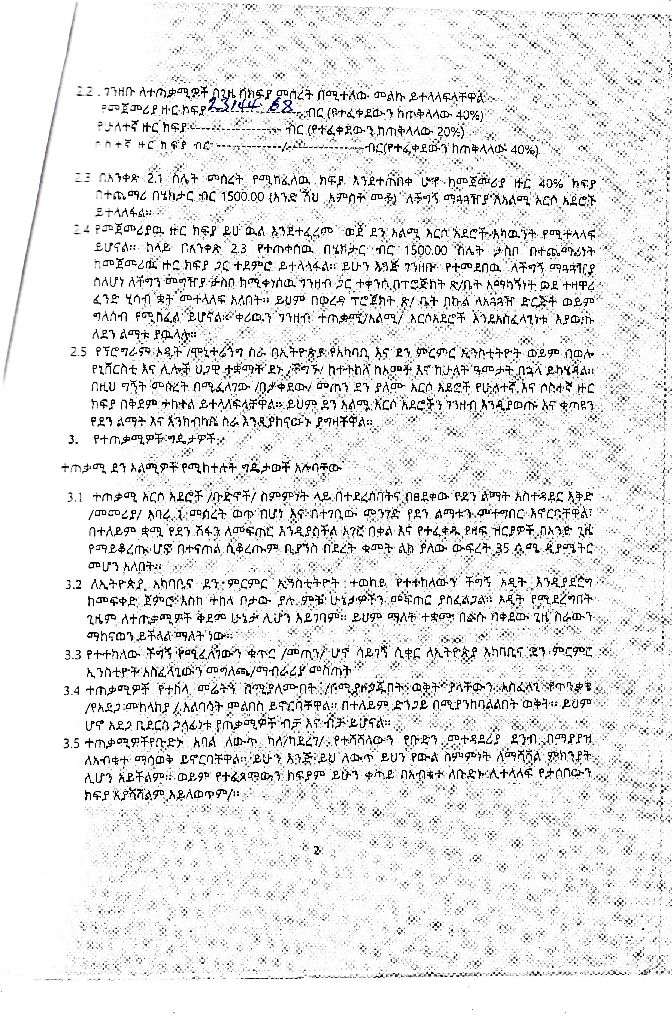 2.2 . ገንዘቡ ለተጠቃሚዎች በጊዜ በክፍያ መሰረት በሚተለው መልኩ ይተላለፍላቸዋል
የመጀመሪያ ዙር ክፍያ 23144.68 ብር (የተፈቀደውን ከጠቅላላው 40%)
የሁለተኛ ዙር ክፍያ ---------------------- ብር (የተፈቀደውን ከጠቅላላው 20%)
ሶስተኛ ዙር ክፍያ ብር ---------------/--------------- ብር(የተፈቀደውን ከጠቅላላው 40%)
2.3 በአንቀጽ 2.1 ስሌት መሰረት የሚከፈለዉ ክፍያ እንደተጠበቀ ሆኖ ከመጀመሪያ ዙር 40% ክፍያ
በተጨማሪ በሄክታር ብር 1500.00 (አንድ ሽህ አምስት መቶ) ለችግኝ ማጓጓዣያ ለአልሚ አርሶ አደሮች
ይተላለፋል።
2.4 የመጀመሪያዉ ዙር ክፍያ ይህ ዉል እንደተፈረመ ወደ ደን አልሚ አርሶ አደሮች አካዉንት የሚተላለፍ
ይሆናል። ከላይ በአንቀጽ 2.3 የተጠቀሰዉ በሄክታር ብር 1500.00 ስሌት ታስቦ በተጨማሪነት
ከመጀመሪዉ ዙር ክፍያ ጋር ተደምሮ ይተላለፋል። ይሁን እንጅ ገንዘቡ የተመደበዉ ለችግኝ ማጓጓዣያ
ስለሆነ ለችግኝ መግዣያ ታስቦ ከሚቀነሰዉ ገንዘብ ጋር ተቀንሶ በፕሮጀክት ጽ/ቤት አማካኝነት ወደ ተዘዋሪ
ፈንድ ሂሳብ ቋት መተላለፍ አለበት። ይህም በወረዳ ፕሮጀክት ጽ/ ቤት በኩል ለአጓጓዥ ድርጅት ወይም
ግለሰብ የሚከፈል ይሆናል። ቀሪዉን ገንዘብ ተጠቃሚ/አልሚ/ አርሶአደሮች እንደአስፈላጊነቱ እያወጡ
ለደን ልማቱ ያዉላሉ።
2.5 የፕሮግራም ኦዲት /ሞኒተሪንግ ስራ በኢትዮጵያ የአካባቢ እና ደን ምርምር ኢንስቲትዮት ወይም በወሎ
የኒቨርስቲ እና ሌሎች ህጋዊ ተቋማት ደኑ /ችግኙ/ ከተተከለ ከ6ወሮች እና ከሁለት ዓመታት በኋላ ይካሄዳል።
በዚህ ግኝት መሰረት በሚፈለገው /በታቀደው/ መጠን ደን ያለሙ አርሶ አደሮች የሁለተኛ እና ሶስተኛ ዙር
ክፍያ በቅደም ተከተል ይተላለፍላቸዋል። ይህም ደን አልሚ አርሶ አደሮችን ገንዘብ እንዲያወጡ እና ቁጠዉን
የደን ልማት እና እንክብካቤ ስራ እንዲያከናውኑ ያግዛቸዋል።
3. የተጠቃሚዎች ግዴታዎች
ተጠቃሚ ደን አልሚዎች የሚከተሉት ግዴታወች አሉባቸው
3.1 ተጠቃሚ አርሶ አደሮች /ቡድኖች/ ስምምነት ላይ በተደረሰበትና በፀደቀው የደን ልማት አስተዳደር እቅድ
/መመሪያ/ አባሪ 1 መሰረት ወጥ በሆነ እና በተገቢው መንገድ የደን ልማቱን መተግበር ይኖርባቸዋል፣
በተለይም ቋሚ የደን ሽፋን ለመፍጠር እንዲያስችል አገር በቀል እና የተፈቀዱ የዛፍ ዝርያዎች በአንድ ጊዜ
የማይቆረጡ ሆኖ በተናጠል ሲቆረጡም ቢያንስ በደረት ቁመት ልክ ያለው ውፍረት 35 ሴ.ሜ ዲያሜትር
መሆን አለበት።
3.2 ለኢትዮጵያ አካባቢና ደን ምርምር ኢንስቲትዮት ተወካይ የተተከለውን ችግኝ ኦዲት እንዲያደርግ
ከመፍቀድ ጀምሮ እስከ ተከላ ቦታው ያሉ ምቹ ሁኔታዎችን መፍጠር ያስፈልጋል። ኦዲት የሚደረግበት
ጊዜም ለተጠቃሚዎች ቅደመ ሁኔታ ሊሆን አይገባም። ይህም ማለት ተቋሙ በልሱ ባቀደው ጊዜ ስራውን
ማከናወን ይችላል ማለት ነው።
3.3 የተተከለው ችግኝ የሚፈለገውን ቁጥር /መጠን/ ሆኖ ሳይገኝ ሲቀር ለኢትዮጵያ አካባቢና ደን ምርምር
ኢንስቲዮት አስፈላጊውን መግለጫ/ማብራሪያ መስጠት
3.4 ተጠቃሚዎች የተከላ መሬትን በሚያለሙበት /በሚያዘጋጁበት ወቅት ያላቸውን አስፈላጊ የጥንቃቄ
/የአደጋ መከላከያ / አልባሳት ምልበስ ይኖርባቸዋል። በተለይም ድንጋይ በሚያንከባልልበት ወቅት። ይህም
ሆኖ አደጋ ቢደርስ ኃላፊነቱ የጠቃሚዎች ብቻ እና ብቻ ይሆናል።
3.5 ተጠቃሚዎች የቡድኑ አባል ለውጥ ካለ/ከደረገ/ የተሻሻለውን የቡድን መተዳደሪያ ደንብ በማያያዝ
ለአብቁተ ማሳወቅ ይኖርባቸዋል። ይሁን እንጅ ይህ ለውጥ ይህን የውል ስምምነት ለማሻሻል ምክንያት
ሊሆን አይችልም። ወይም የተፈጸመውን ክፍያም ይሁን ቀጣይ በአብቁተ ለቡድኑ ሊተላለፍ የታሰበውን
ክፍያ አያሻሽልም አይለወጥም/።
2